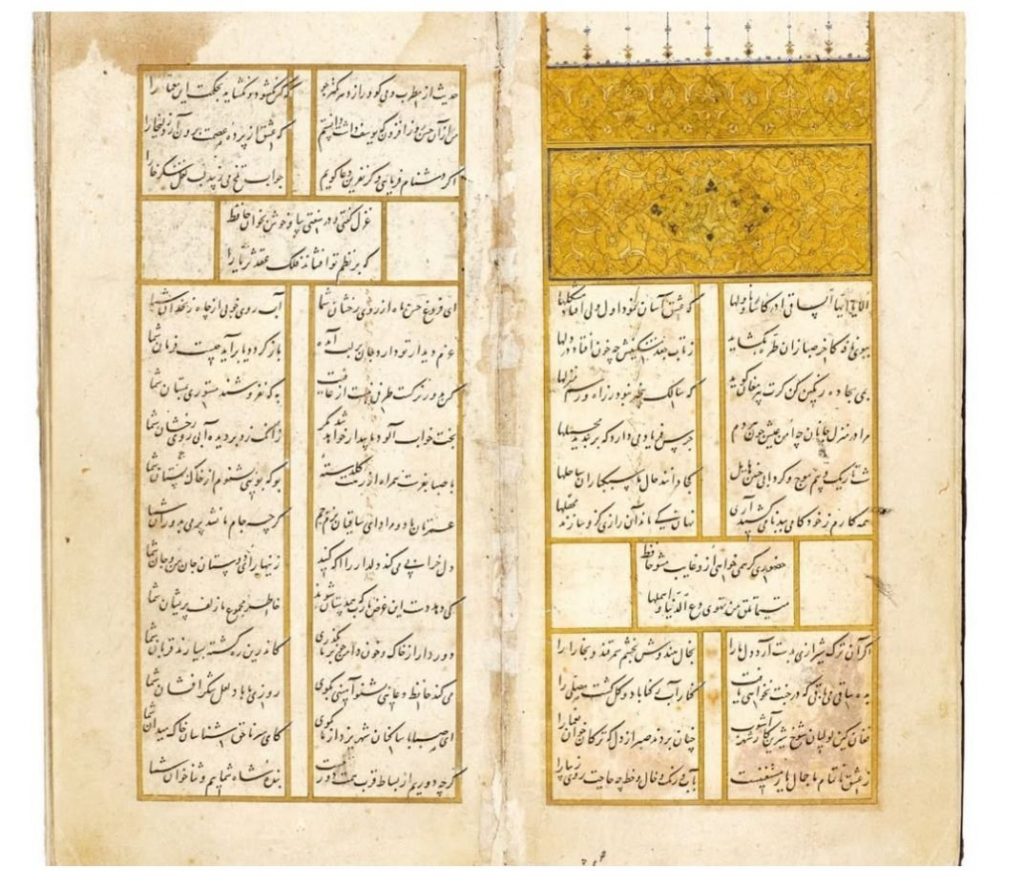 الا یا ایها الساقی ادر کاسا و ناولها که عشق آسان نمود اول ولی افتاد مشکلها
ببوی نافه کاخر صبا زان طره بگشاید ز تاب جعد مشکینش چه خون افتاد در دلها
بمی سجاده رنگین کن گرت پیر مغان گوید که سالک بیخبر نبود ز راه و رسم منزلها
مرا در منزل جانان چه امن عیش چون هر دم جرس فریاد می دارد که بربندید محملها
شب تاریک و بیم موج و گردابی چنین هایل کجا دانند حال ما سبکباران ساحلها
همه کارم ز خود کامی ببدنامی کشید آری نهان کی ماند آن رازی کزو سازند محفلها
حضوری گر همی خواهی ازو غایب مشو حافظ
متی ما تلق من تهوی دع الدنیا و اهملها
اگر آن ترک شیرازی بدست آرد دل ما را بخال هندویش بخشم سمرقند و بخارا را
بده ساقی می باقی که در جنت نخواهی یافت کنار آب رکناباد و گلگشت مصلی را
فغان کین لولیان شوخ شیرین کار شهرآشوب چنان بردند صبر از دل که ترکان خوان یغما را
ز عشق ناتمام ما جمال یار مستغنیست بآب و رنگ و خال و خط چه حاجت روی زیبا را
حدیث از مطرب و می گو و راز دهر کمتر جو که کس نگشود و نگشاید بحکمت این معما را
من از آن حسن روز افزون که یوسف داشت دانستم که عشق از پرده عصمت برون آرد زلیخا را
اگر دشنام فرمایی و گر نفرین دعا گویم جواب تلخ می زیبد لب لعل شکر خا را
غزل گفتی و در سفتی بیا و خوش بخوان حافظ
که بر نظم تو افشاند فلک عقد ثریا را
ای فروغ حسن ماه از روی رخشان شما آب روی خوبی از چاه زنخدان شما
عزم دیدار تو دارد جان بر لب آمده باز گردد یا برآید چیست فرمان شما
کس بدور نرگست طرفی نبست از عافیت به که نفروشند مستوری بمستان شما
بخت خواب آلود ما بیدار خواهد شد مگر زانک زد بر دیده آبی روی رخشان شما
با صبا بفرست همراه از رخت گلدسته بو که بویی بشنوم از خاک بستان شما
عمرتان باد و مراد ای ساقیان بزم جم گرچه جام ما نشد پر می بدوران شما
دل خرابی می کند دلدار را آگه کنید زینهار ای دوستان جان من و جان شما
کی دهد دست این غرض یا رب که همدستان شوند خاطر مجموع ما زلف پریشان شما
دور دار از خاک و خون دامن چو بر ما بگذری کاندرین ره کشته بسیارند قربان شما
می کند حافظ دعایی بشنو آمینی بگوی روزی ما باد لعل شکر افشان شما
ای صبا با ساکنان شهر یزد از ما بگوی کای سر ناحق شناسان خاک میدان شما
گرچه دوریم از بساط قرب همت دور نیست بنده شاه شماییم و ثنا خوان شما